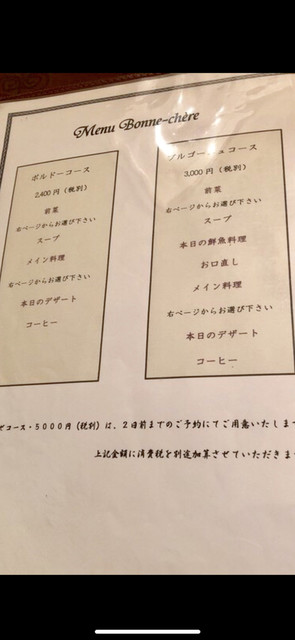 Menu Bonne-chère
ボルドーコース
2,400円（税別）
前菜
右ページからお選び下さい
スープ
メイン料理
右ページからお選び下さい
本日のデザート
コーヒー
ブルゴーニュコース
3,000円（税別）
前菜
右ページからお選び下さい
スープ
本日の鮮魚料理
お口直し
メイン料理
右ページからお選び下さい
本日のデザート
コーヒー
コース・５０００円（税別）は、２日前までのご予約にてご用意いたしま
上記金額に消費税を別途加算させていただきま